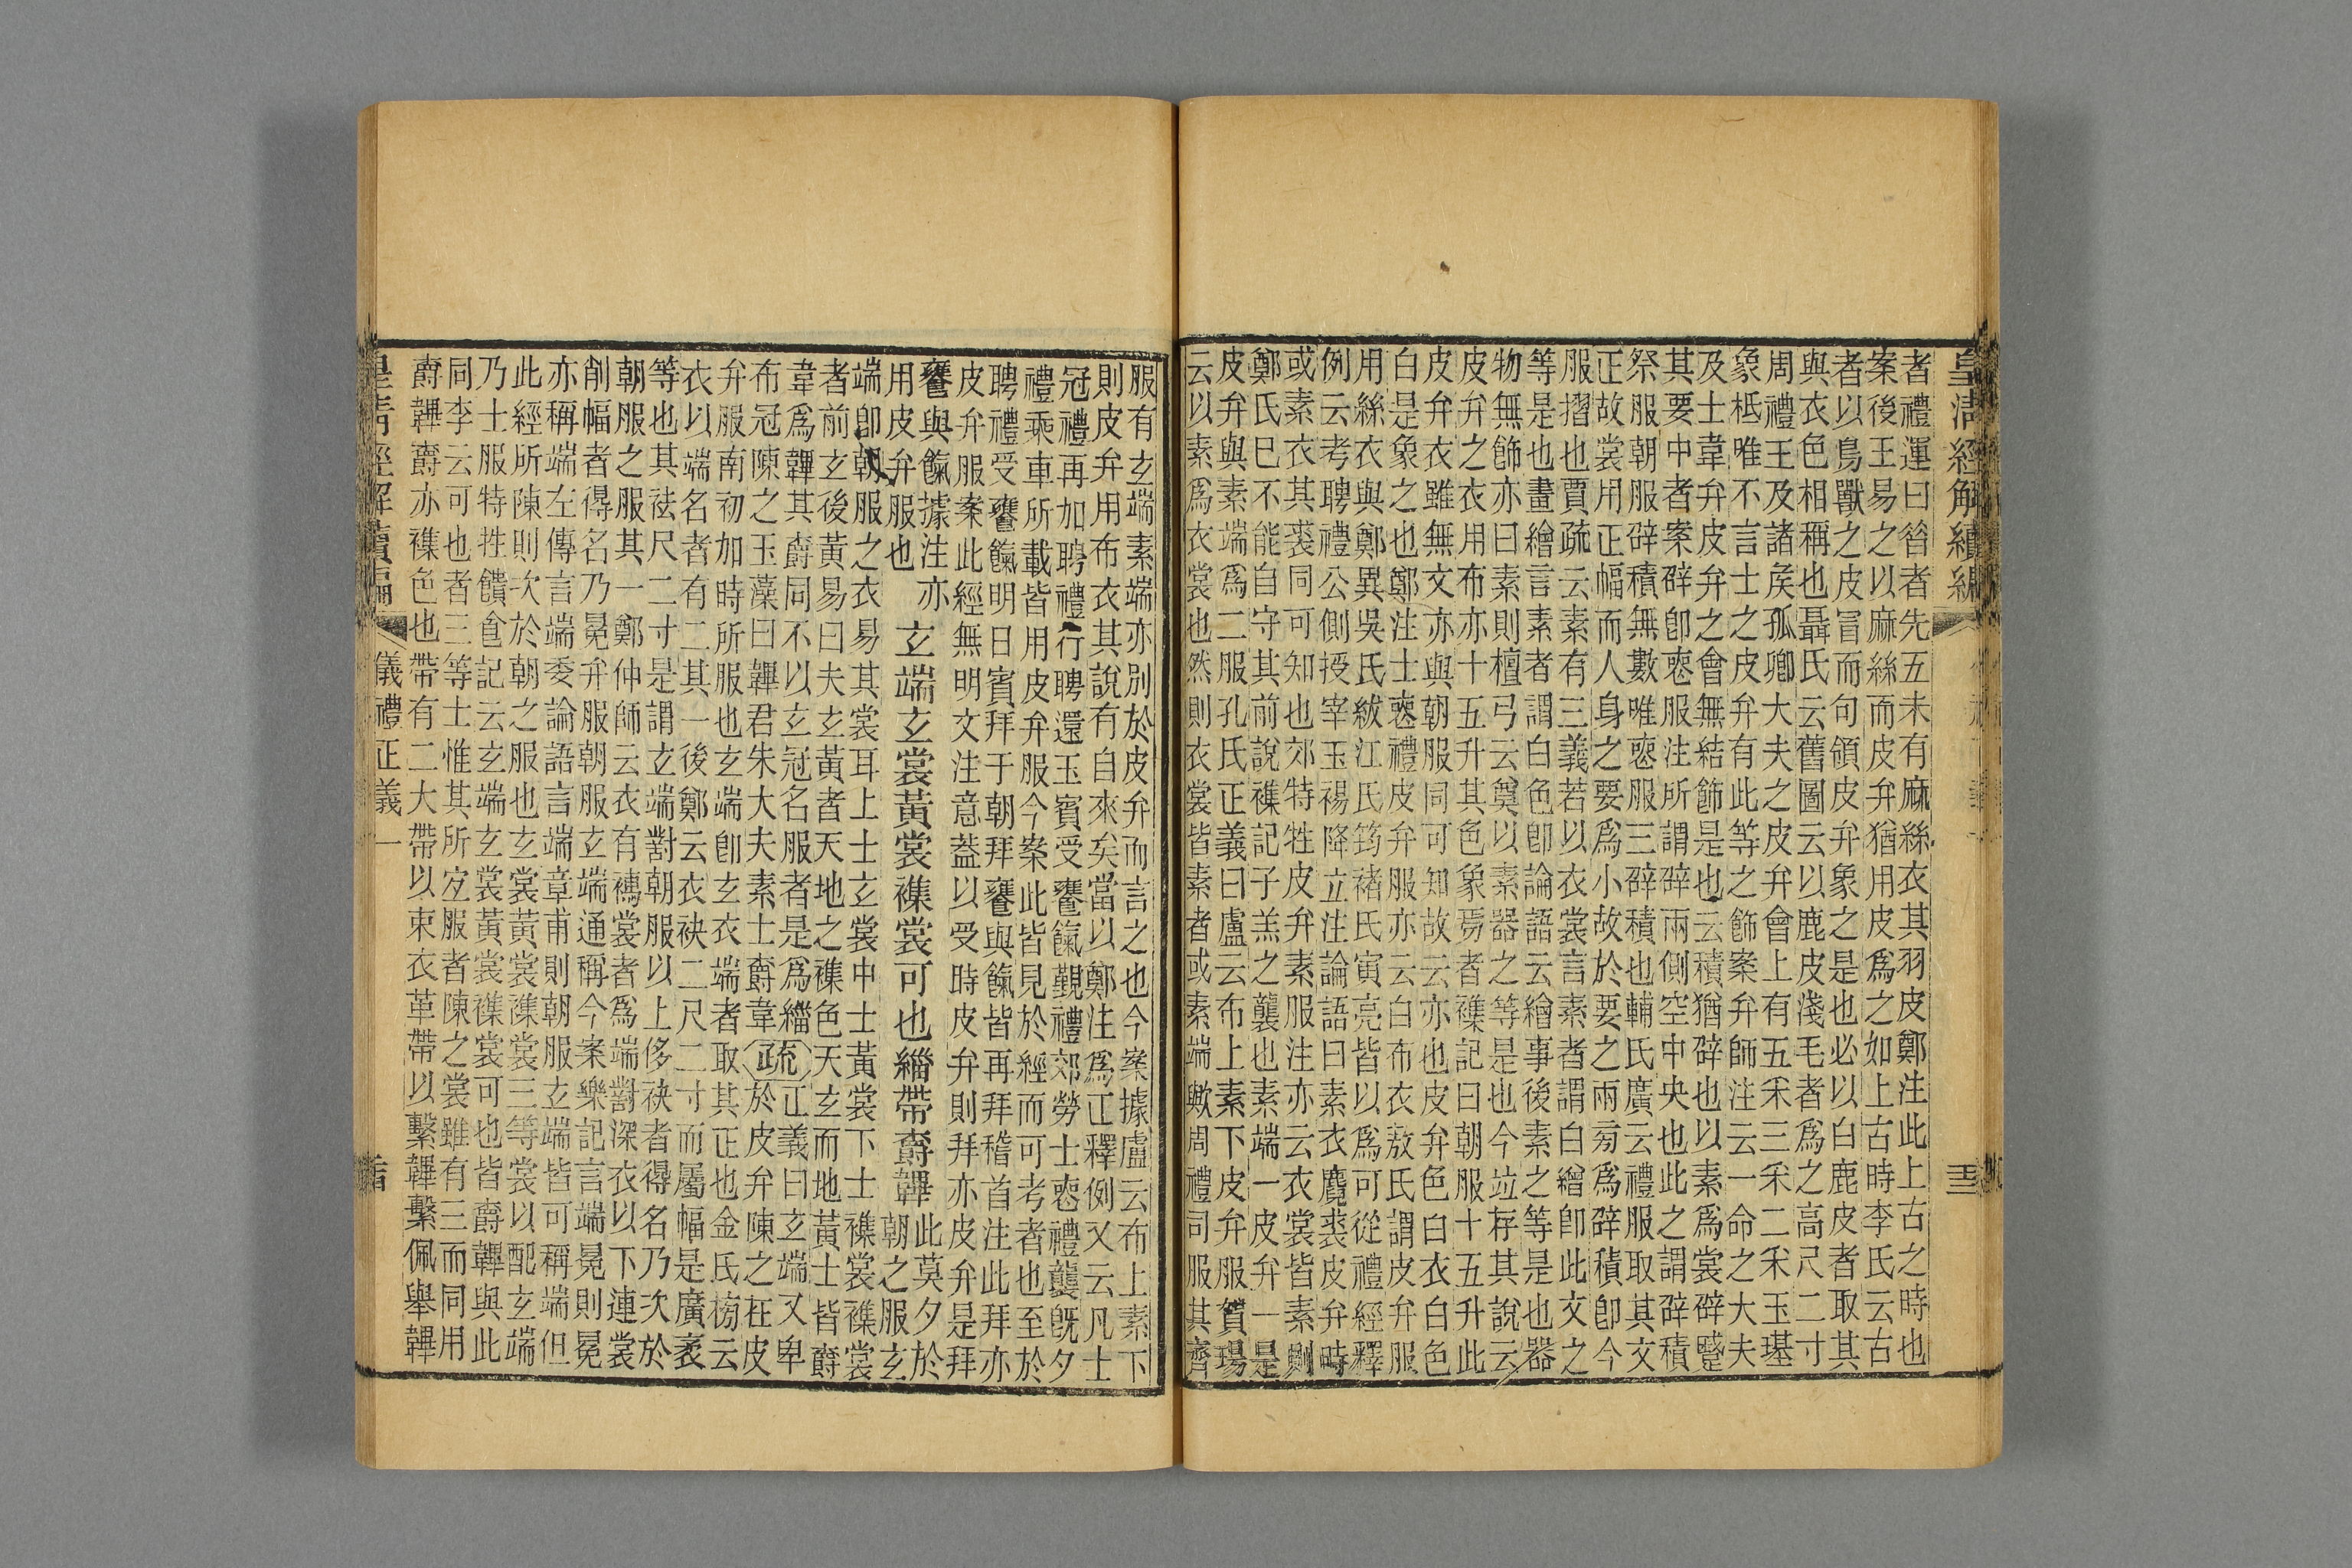 皇清經解續編
者禮運曰昝者先五未有麻絲衣其羽皮鄭注此上古之時也
案後王易之以麻絲而皮弁猶用皮爲之如上古時李氏云古
者以鳥獸之皮冒而句領皮弁象之是也必以白鹿皮者取其
與衣色相稱也聶氏云舊圖云以鹿皮淺毛者爲之高尺二寸
周禮王及諸矦孤卿大夫之皮弁會上有五采三采二采玉璂
象柢唯不言士之皮弁有此等之飾案弁師注云一命之大夫
及士韋弁皮弁之會無結飾是也云積猶辟也以素爲裳辟蹙
其要中者案辟卽喪服注所謂辟兩側空中央也此之謂辟積
祭服朝服辟積無數唯喪服三辟積也輔氏廣云禮服取其文
正故裳用正幅而人身之要爲小故於要之兩旁爲辟積卽今
服摺也賈疏云素有三義若以衣裳言素者謂白繒卽此文之
等是也畫繪言素者謂白色卽論語云繪事後素之等是也器
物無飾亦曰素則檀弓云奠以素器之等是也今竝存其說云
皮弁之衣用布亦十五升其色象焉者襍記曰朝服十五升此
皮弁衣雖無文亦與朝服同可知故云亦也皮弁色白衣白色
白是象之也鄭注士喪禮皮弁服亦云白布衣敖氏謂皮弁服
用絲衣與鄭異吳氏紱江氏筠褚氏寅亮皆以爲可從禮經釋
例云考聘禮公側授宰玉裼降立注論語曰素衣麑裘皮弁時
或素衣其裘同可知也郊特牲皮弁素服注亦云衣裳皆素則
鄭氏巳不能自守其前說襍記子羔之襲也素端一皮弁一是
皮弁與素端爲二服孔氏正義曰盧云布上素下皮弁服賀瑒
云以素爲衣裳也然則衣裳皆素者或素端歟周禮司服其齊
服有玄端素端亦別於皮弁而言之也今案據盧云布上素下
則皮弁用布衣其說有自來矣當以鄭注爲正釋例又云凡士
冠禮再加聘禮行聘還玉賓受饔餼覲禮郊勞士喪禮襲旣夕
禮乘車所載皆用皮弁服今案此皆見於經而可考者也至於
聘禮受饔餼明日賓拜于朝拜饔與餼皆再拜稽首注此拜亦
皮弁服案此經無明文注意葢以受時皮弁則拜亦皮弁是拜
饔與餼據注亦
用皮弁服也
玄端玄裳黃裳襍裳可也緇帶爵韠
此莫夕於
朝之服玄
端卽朝服之衣易其裳耳上士玄裳中士黃裳下士襍裳襍裳
者前玄後黃易曰夫玄黃者天地之襍色天玄而地黃士皆爵
韋爲韠其爵同不以玄冠名服者是爲緇
布冠陳之玉藻曰韠君朱大夫素士爵韋
疏
正義曰玄端又卑
於皮弁陳之在皮
弁服南初加時所服也玄端卽玄衣端者取其正也金氏榜云
衣以端名者有二其一後鄭云衣袂二尺二寸而屬幅是廣袤
等也其袪尺二寸是謂玄端對朝服以上侈袂者得名乃次於
朝服之服其一鄭仲師云衣有襦裳者爲端對深衣以下連裳
削幅者得名乃冕弁服朝服玄端通稱今案樂記言端冕則冕
亦稱端左傳言端委論語言端章甫則朝服玄端皆可稱端但
此經所陳則次於朝之服也玄裳黃裳襍裳三等裳以配玄端
乃士服特牲饋食記云玄端玄裳黃裳襍裳可也皆爵韠與此
同李云可也者三等士惟其所宜服者陳之裳雖有三而同用
爵韠爵亦襍色也帶有二大帶以束衣革帶以繫韠繫佩舉韠
皇清經解續編 儀禮正義一